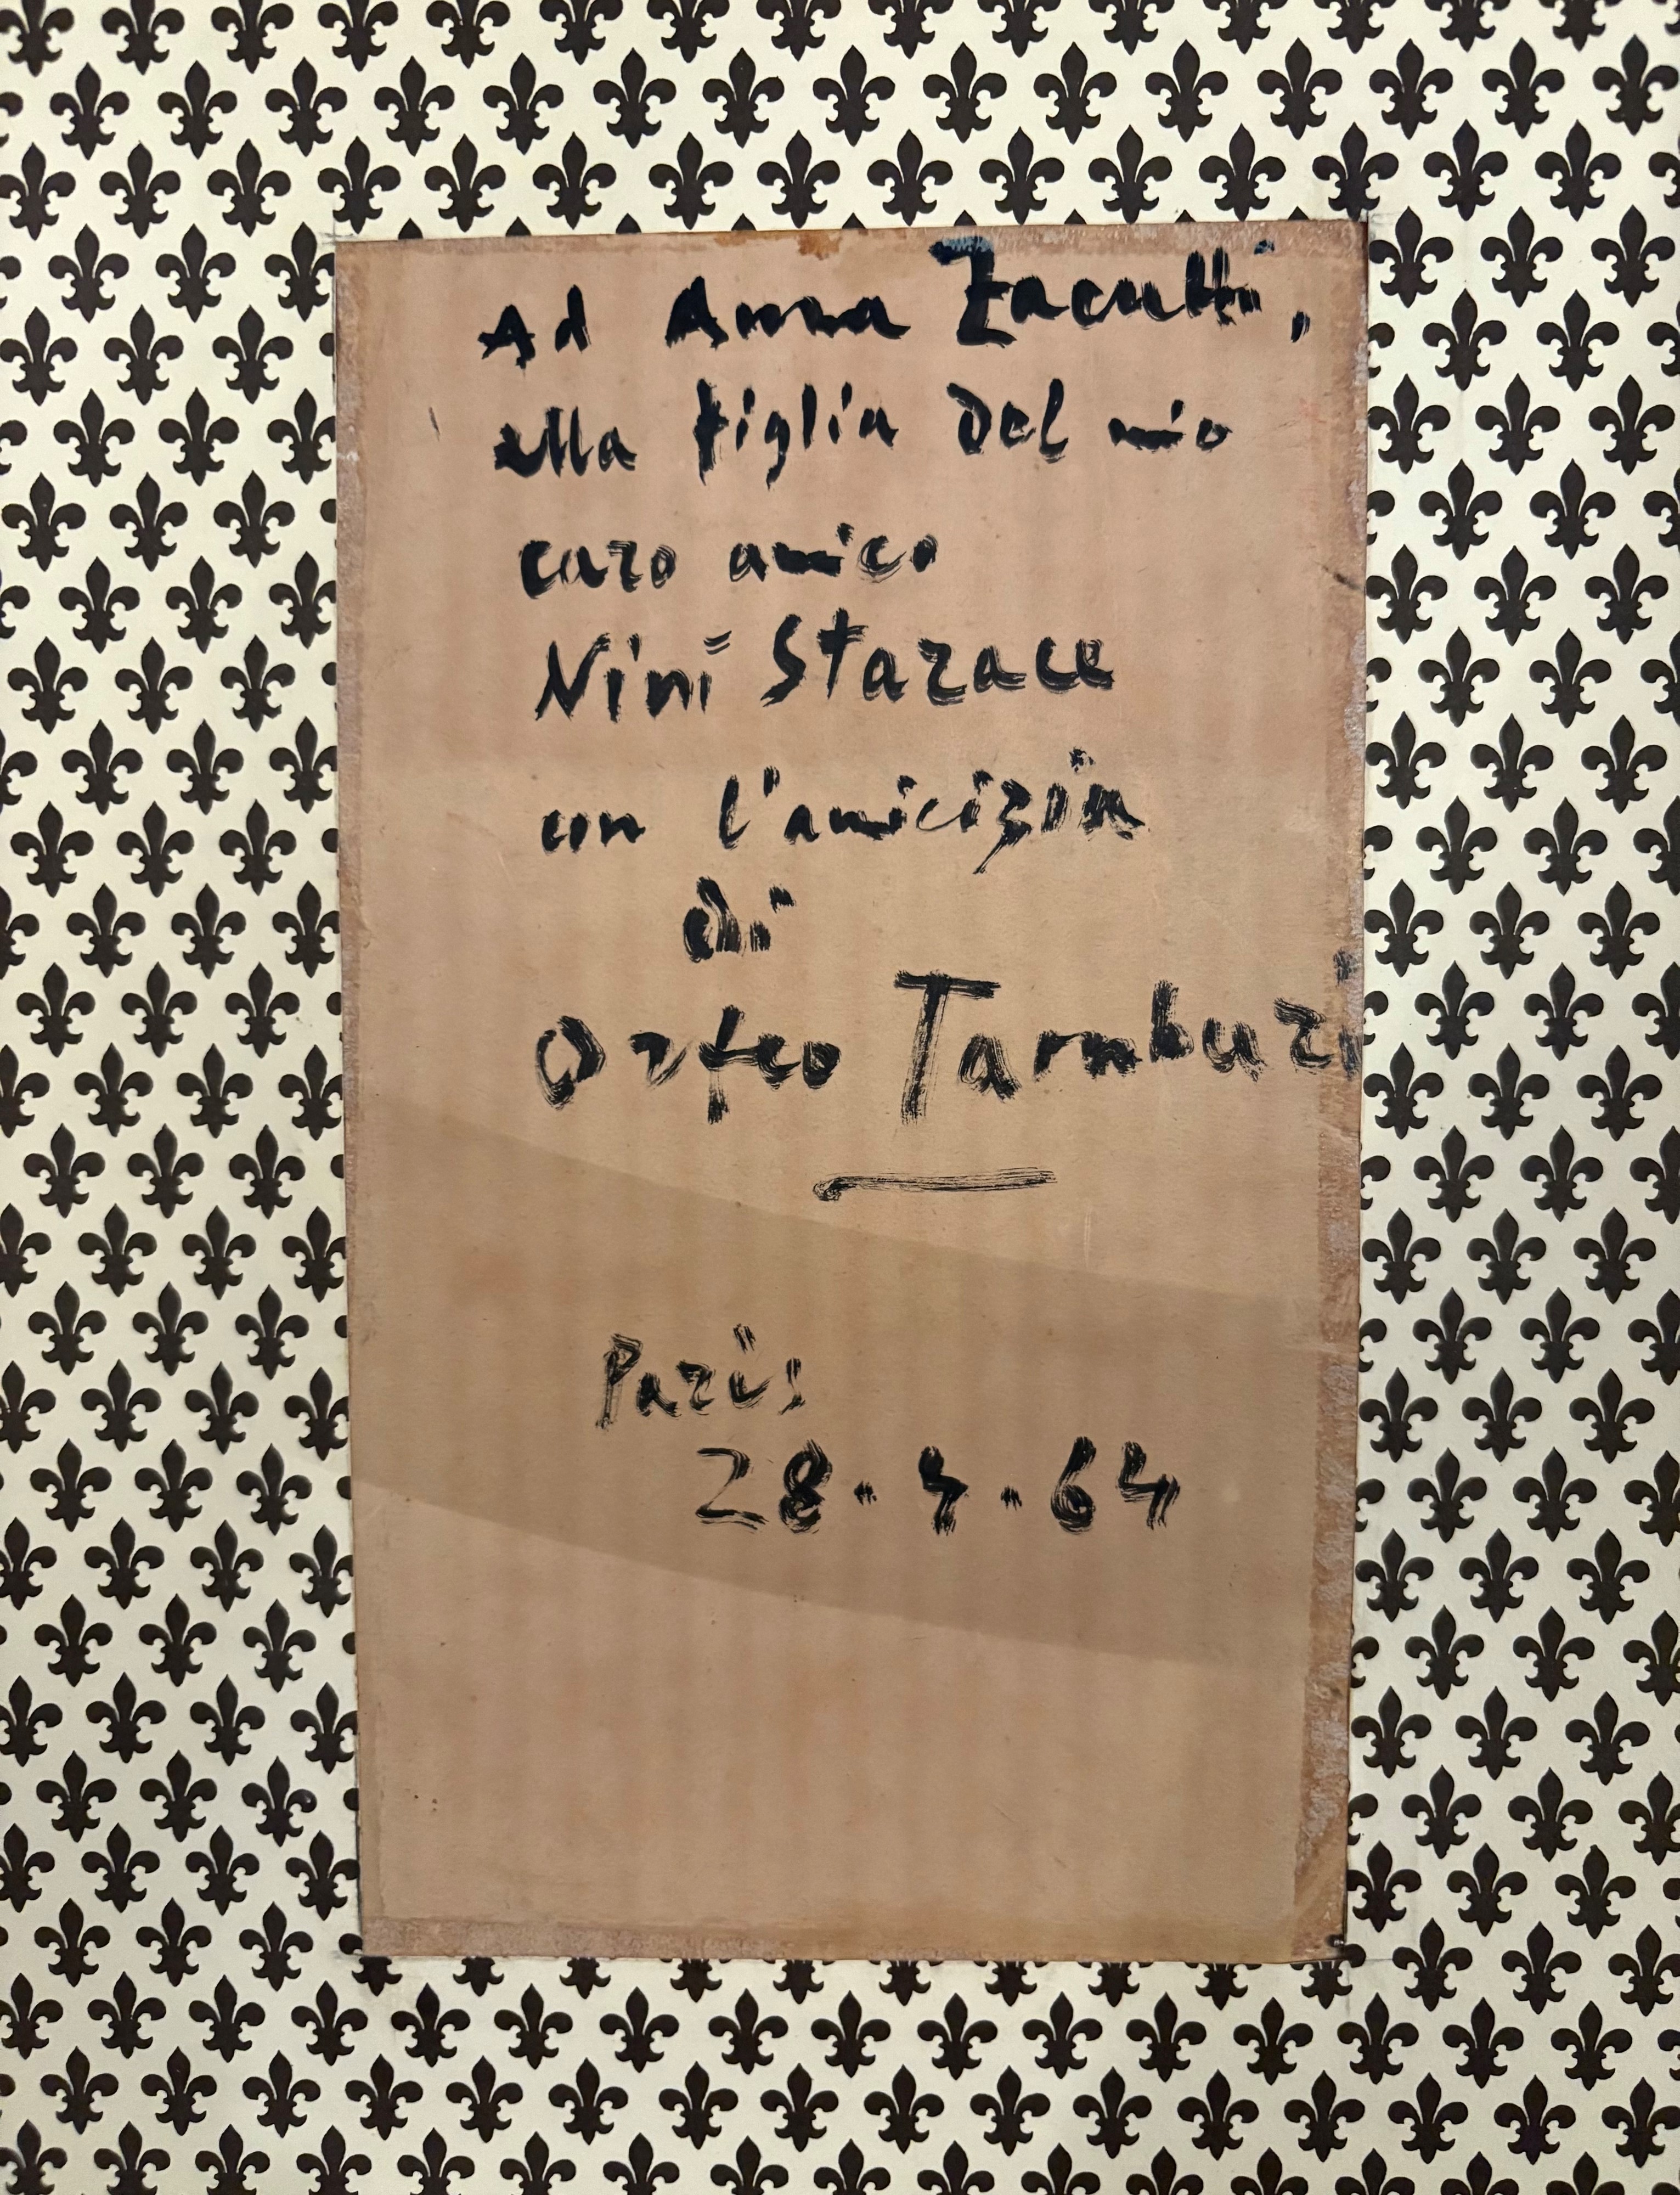 Ad Anna Zacutti,
alla figlia del mio
caro amico
Ninì Starace
con l'amicizia
di
Orfeo Tamburi
Paris
28.4.64